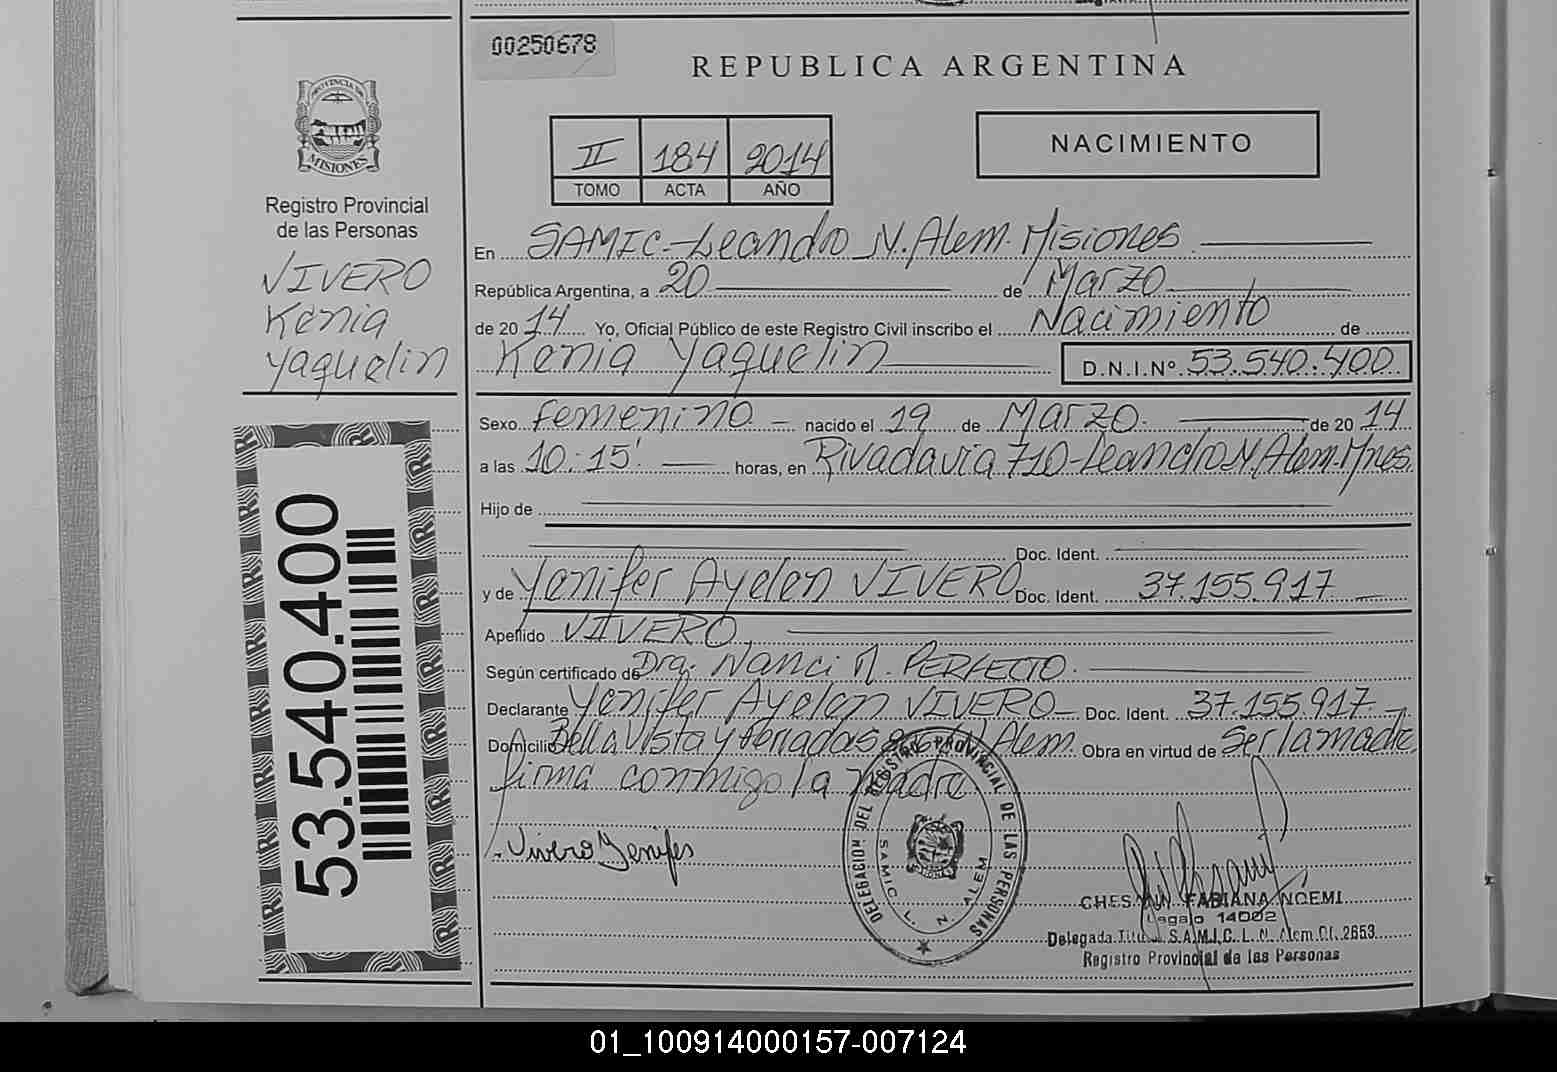 00250678
REPUBLICA ARGENTINA
PROVINCIA DE
MISIONES
II 184 2014
TOMO ACTA AÑO
NACIMIENTO
Registro Provincial
de las Personas
VIVERO
Kenia
Yaquelin
En SAMIC-Leandro N. Alem. Misiones
República Argentina, a 20 de Marzo
de 2014 Yo, Oficial Público de este Registro Civil inscribo el Nacimiento de
Kenia Yaquelin D.N.I.Nº 53.540.400
Sexo Femenino nacido el 19 de Marzo. de 2014
a las 10:15' horas, en Rivadavia 710-Leandro N. Alem. Mnes.
Hijo de
Doc. Ident.
y de Yenifer Ayelen VIVERO Doc. Ident. 37.155.917
Apellido VIVERO
Según certificado de Dra. Nanci M. PERFECTO.
Declarante Yenifer Ayelen VIVERO Doc. Ident. 37.155.917
Domicilio Bella Vista y Alem. Obra en virtud de Ser la madre
firma conmigo la madre.
Vivero Yenifer
DELEGACION DEL REGISTRO PROVINCIAL DE LAS PERSONAS
SAMIC L. N. ALEM
FABIANA NOEMI
Legajo 14002
Delegada S.A.M.I.C. L. N. Alem Of. 2653
Registro Provincial de las Personas
53.540.400
01_100914000157-007124